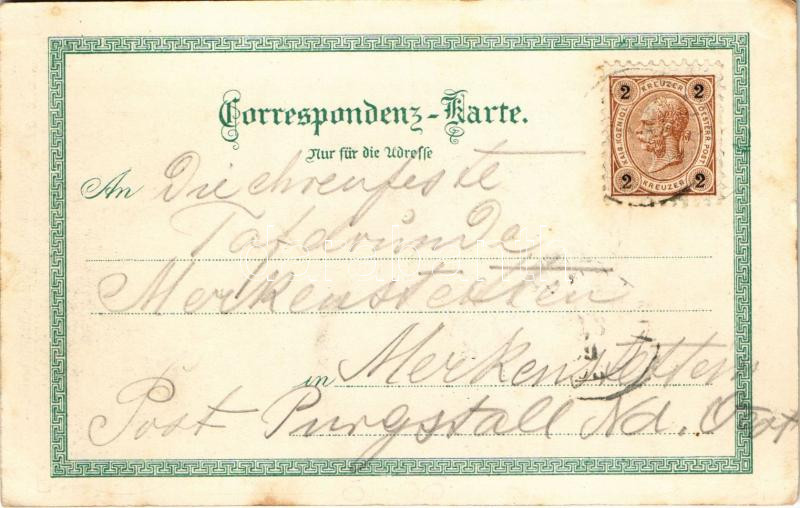 Correspondenz-Karte.
Nur für die Adresse
An Die ehrenfeste
Tafelrunde
Merkenstetten
in Merkenstetten
Post Purgstall Nd. Öst
2 KREUZER 2
KAIS. KÖNIGL. OESTERR. POST
2 KREUZER 2
9